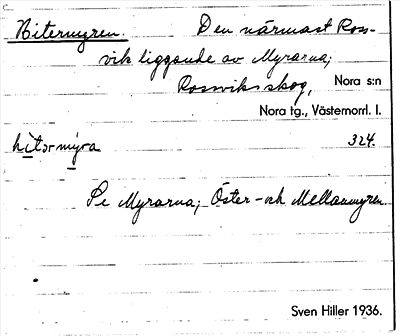 Bitermyren. Den närmast Ross-
vik liggande av Myrarna;
Rossviks skog, Nora s:n
Nora tg., Västernorrl. l.
bitərmýra 324.
Se Myrarna; Öster- och Mellanmyren.
Sven Hiller 1936.